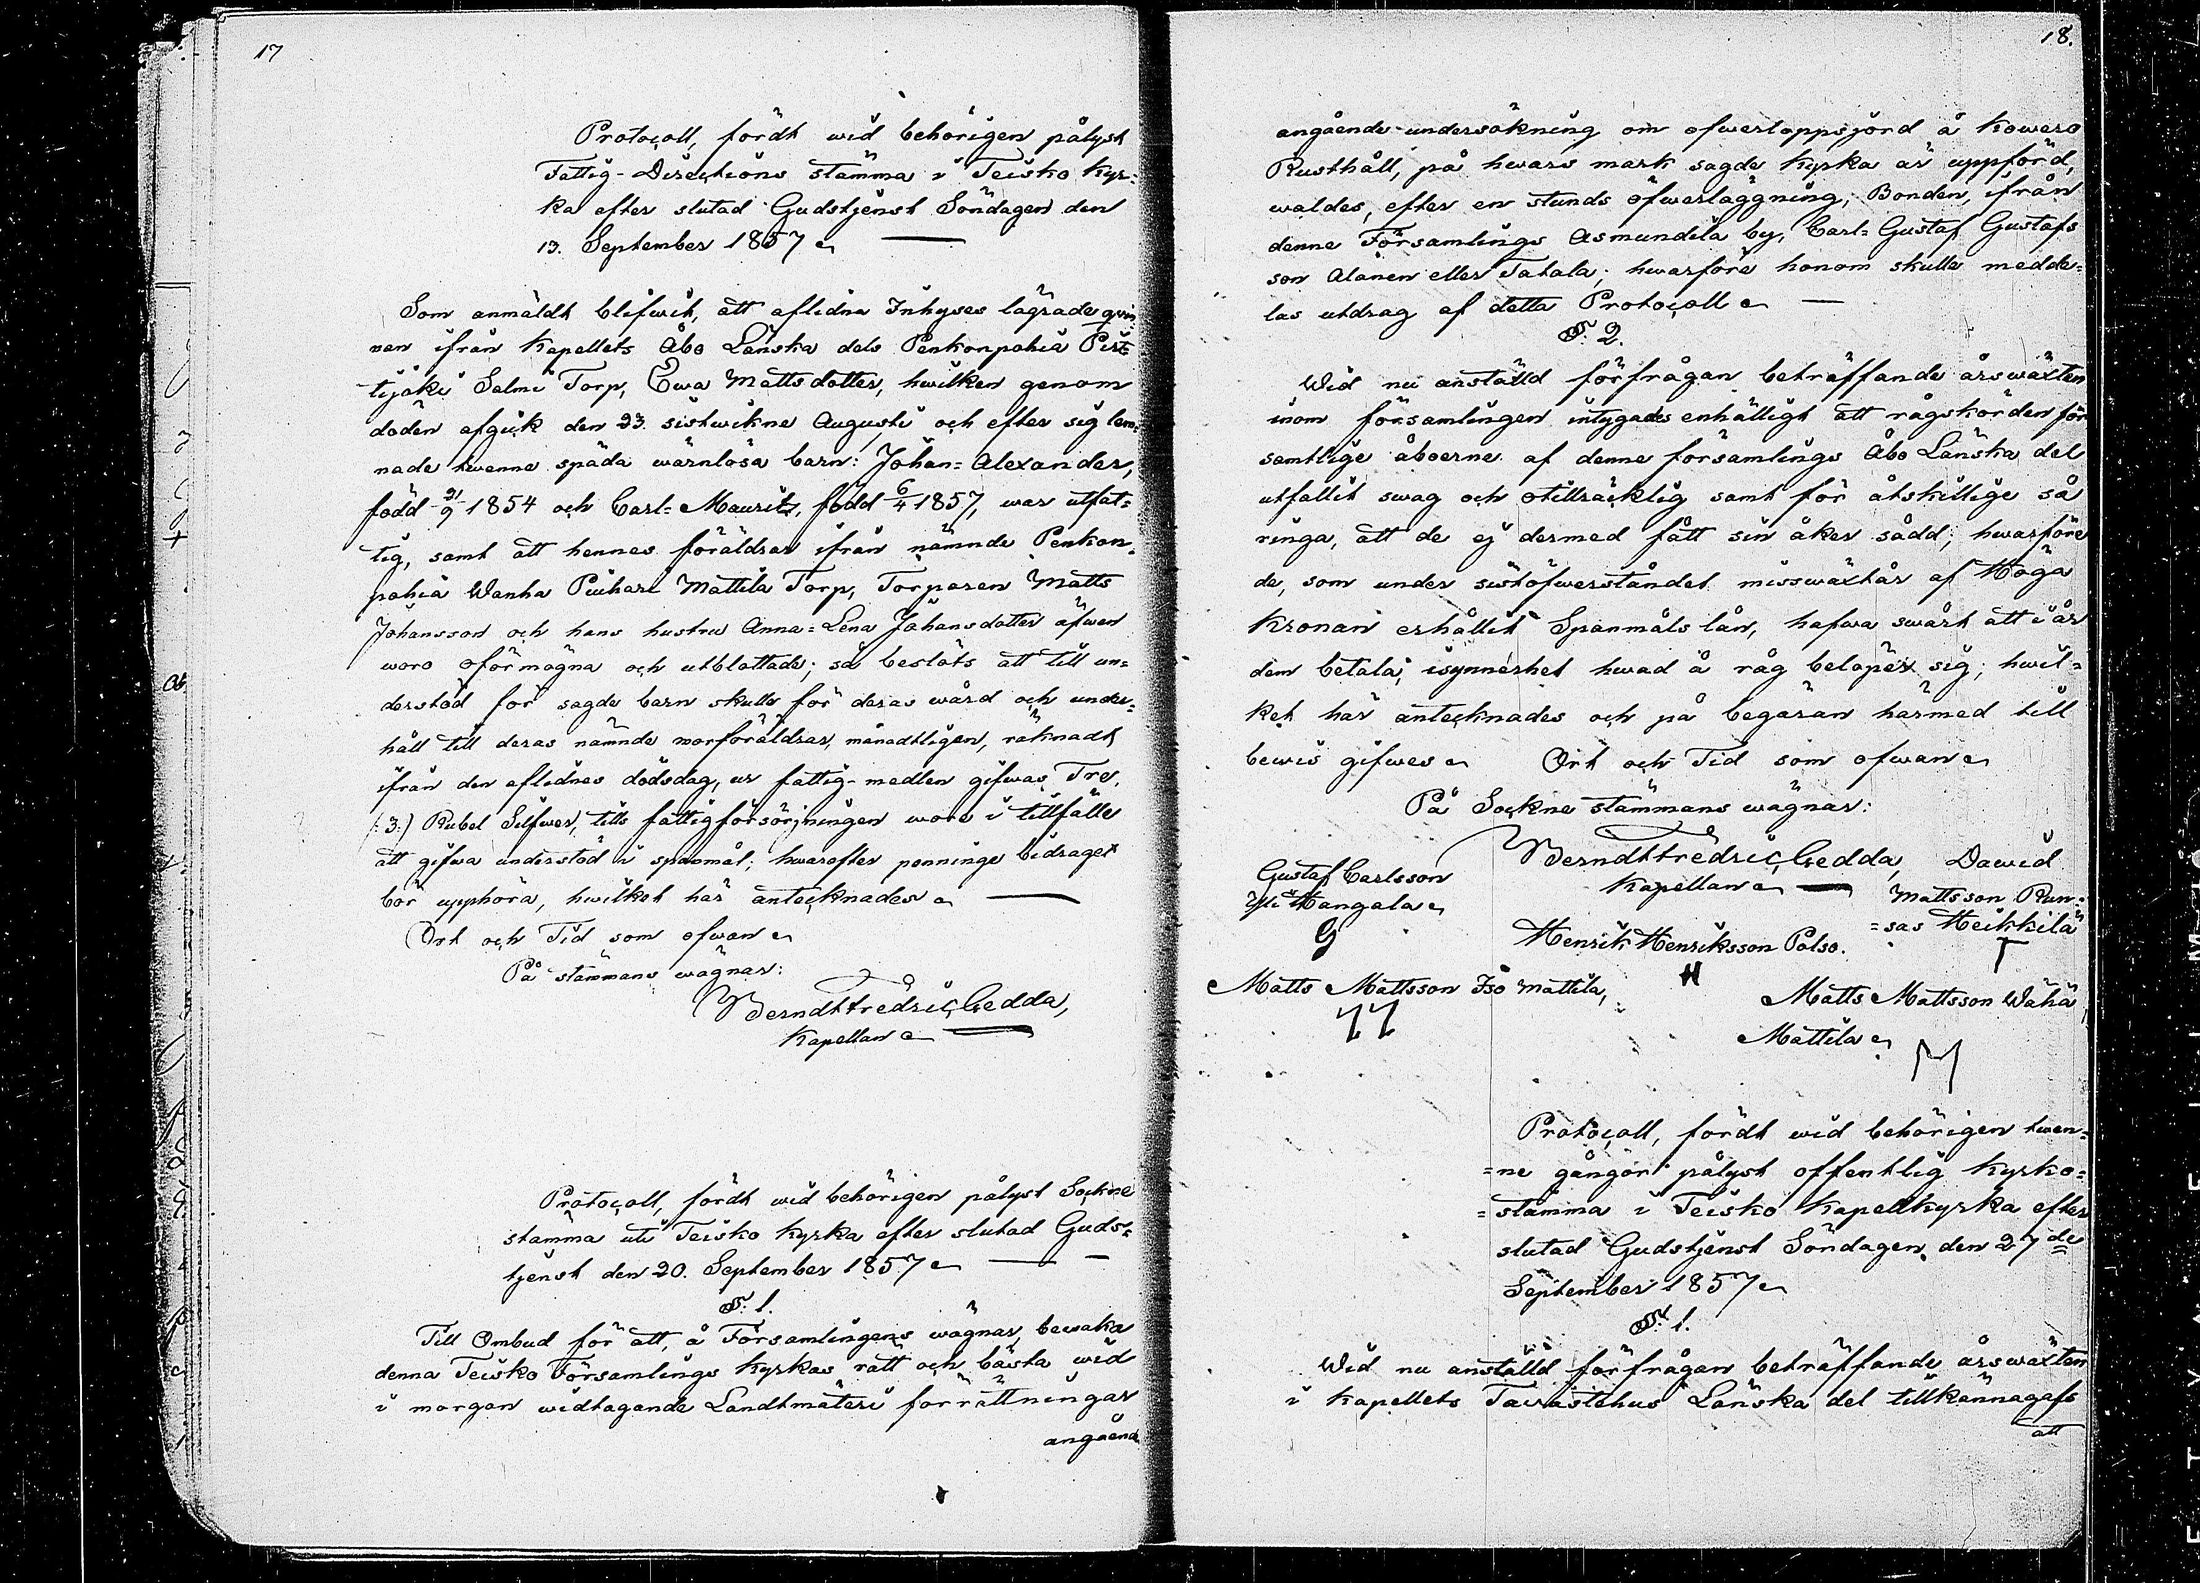 17
Protocoll, fördt wid behörigen pålyst
Fattig-Directions stämma i Teisko Kyr=
ka efter slutad Gudstjenst Söndagen den
13. September 1857
Som anmäldt blifwit, att aflidna Inhyses lägrade qvin
nan ifrån Kapellets Åbo Länska dels Penkonpohia Pirt=
tijoki Salmi Torp, Ewa Mattsdotter, hwilken genom
döden afgick den 23. sistwikne Augusti och efter sig lem=
nade twenne späda wärnlösa barn: Johan=Alexander,
född 21/9 1854 och Carl=Maurits, född 6/4 1857, war utfat=
tig, samt att hennes föräldrar ifrån nämnde Penkon=
pohia Wanha Mattila Torp, Torparen Matts
Johansson och hans hustru Anna=Lena Johansdotter äfwen
woro oförmögna och utblottade; så beslöts att till un=
derstöd för sagde barn skulle för deras wård och under=
håll till deras nämnde morföräldrar, månadtligen, räknadt
ifrån den aflidnes dödsdag, ur fattig-medlen gifwas Tre,
(:3:) Rubel Silfwer, tills fattigförsörjningen wore i tillfälle
att gifwa understöd i spanmål; hwarefter penninge bidraget
bör upphöra, hwilket här antecknades
Ort och Tid som ofwan
På stämmans wägnar:
Berndt Fredric Gedda,
Kapellan
Protocoll, fördt wid behörigen pålyst Sockne
stämma uti Teisko Kyrka efter slutad Guds=
tjenst den 20. September 1857
§. 1.
Till Ombud för att, å Församlingens wägnar, bewaka
denna Teisko Församlings Kyrkas rätt och bästa wid
i morgon widtagande Landtmäteri förrättningar
angående
18.
angående undersökning om ofwerloppsjord å Kowero
Rusthåll, på hwars mark sagde Kyrka är uppförd,
waldes, efter en stunds öfwerläggning, Bonden, ifrån
denne Församlings Asmundila by, Carl=Gustaf Gustafs
son Alanen eller Tatala; hwarföre honom skulle medde=
las utdrag af detta Protocoll
§. 2.
Wid nu anställd förfrågan beträffande årswäxten
inom församlingen intygades enhälligt att rågskörden för
samtlige åboerne af denne församlings Åbo Länska del
utfallit swag och otillräcklig samt för åtskillige så
ringa, att de ej dermed fått sin åker sådd; hwarföre
de, som under sistöfwerståndet misswäxtår af Höga
Kronan erhållit Spanmåls lån, hafwa swårt att i år
dem betala, isynnerhet hwad å råg beloper sig; hwil=
ket här antecknades och på begäran härmed till
bewis gifwes Ort och Tid som ofwan
På Sockne stämmans wägnar:
Berndt Fredric Gedda,
Kapellan
Gustaf Carlsson
Yli Hangala
G
Dawid
Mattsson Run=
=sas Heikkilä
T
Henrik Henriksson Polso.
H
Matts Mattsson Iso Mattila,
Matts Mattsson Wähä
Mattila
M
Protocoll, fördt wid behörigen twen=
=ne gångor pålyst offentlig Kyrko=
=stämma i Teisko Kapellkyrka efter
slutad Gudstjenst Söndagen den 27de
September 1857
§. 1.
Wid nu anställd förfrågan beträffande årswäxten
i Kapellets Tawastehus Länska del tillkännagafs
att